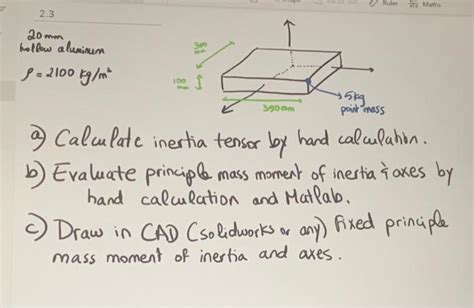 Ruler
Maths
2.3
20mm
hollow aluminum
ρ = 2100 kg/m³
300
mm
100
mm
350mm
5kg
point mass
a) Calculate inertia tensor by hand calculation.
b) Evaluate principle mass moment of inertia & axes by
hand calculation and Matlab.
c) Draw in CAD (solidworks or any) fixed principle
mass moment of inertia and axes.